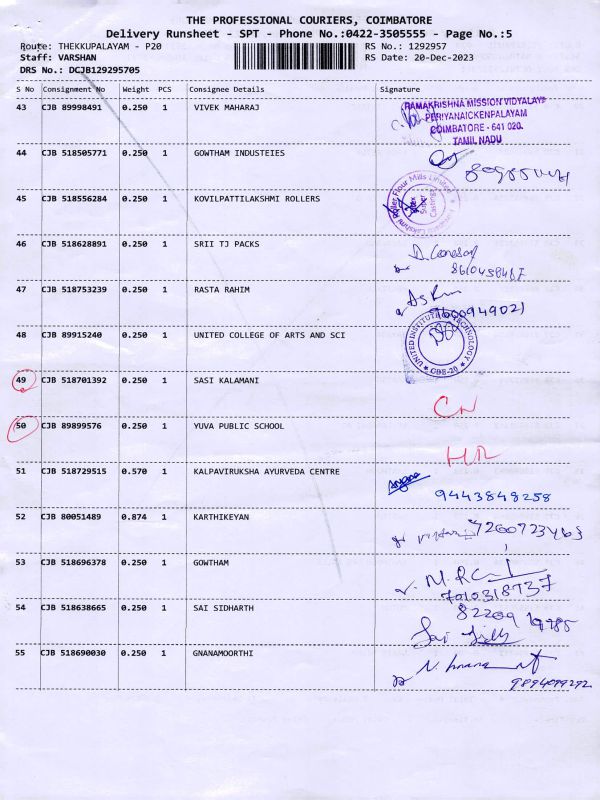 THE PROFESSIONAL COURIERS, COIMBATORE
Delivery Runsheet - SPT - Phone No.:0422-3505555 - Page No.:5
Route: THEKKUPALAYAM - P20 RS No.: 1292957
Staff: VARSHAN RS Date: 20-Dec-2023
DRS No.: DCJB129295705
S No Consignment No Weight PCS Consignee Details Signature
43 CJB 89998491 0.250 1 VIVEK MAHARAJ RAMAKRISHNA MISSION VIDYALAYA
PERIYANAICKENPALAYAM
COIMBATORE - 641 020.
TAMIL NADU
44 CJB 518505771 0.250 1 GOWTHAM INDUSTEIES
45 CJB 518556284 0.250 1 KOVILPATTILAKSHMI ROLLERS
46 CJB 518628891 0.250 1 SRII TJ PACKS
47 CJB 518753239 0.250 1 RASTA RAHIM
9600949021
48 CJB 89915240 0.250 1 UNITED COLLEGE OF ARTS AND SCI UNITED INSTITUTE OF TECHNOLOGY
CBE-20
49 CJB 518701392 0.250 1 SASI KALAMANI
CN
50 CJB 89899576 0.250 1 YUVA PUBLIC SCHOOL
51 CJB 518729515 0.570 1 KALPAVIRUKSHA AYURVEDA CENTRE
9443848258
52 CJB 80051489 0.874 1 KARTHIKEYAN
53 CJB 518696378 0.250 1 GOWTHAM
7010318737
54 CJB 518638665 0.250 1 SAI SIDHARTH
55 CJB 518690030 0.250 1 GNANAMOORTHI
9894099292